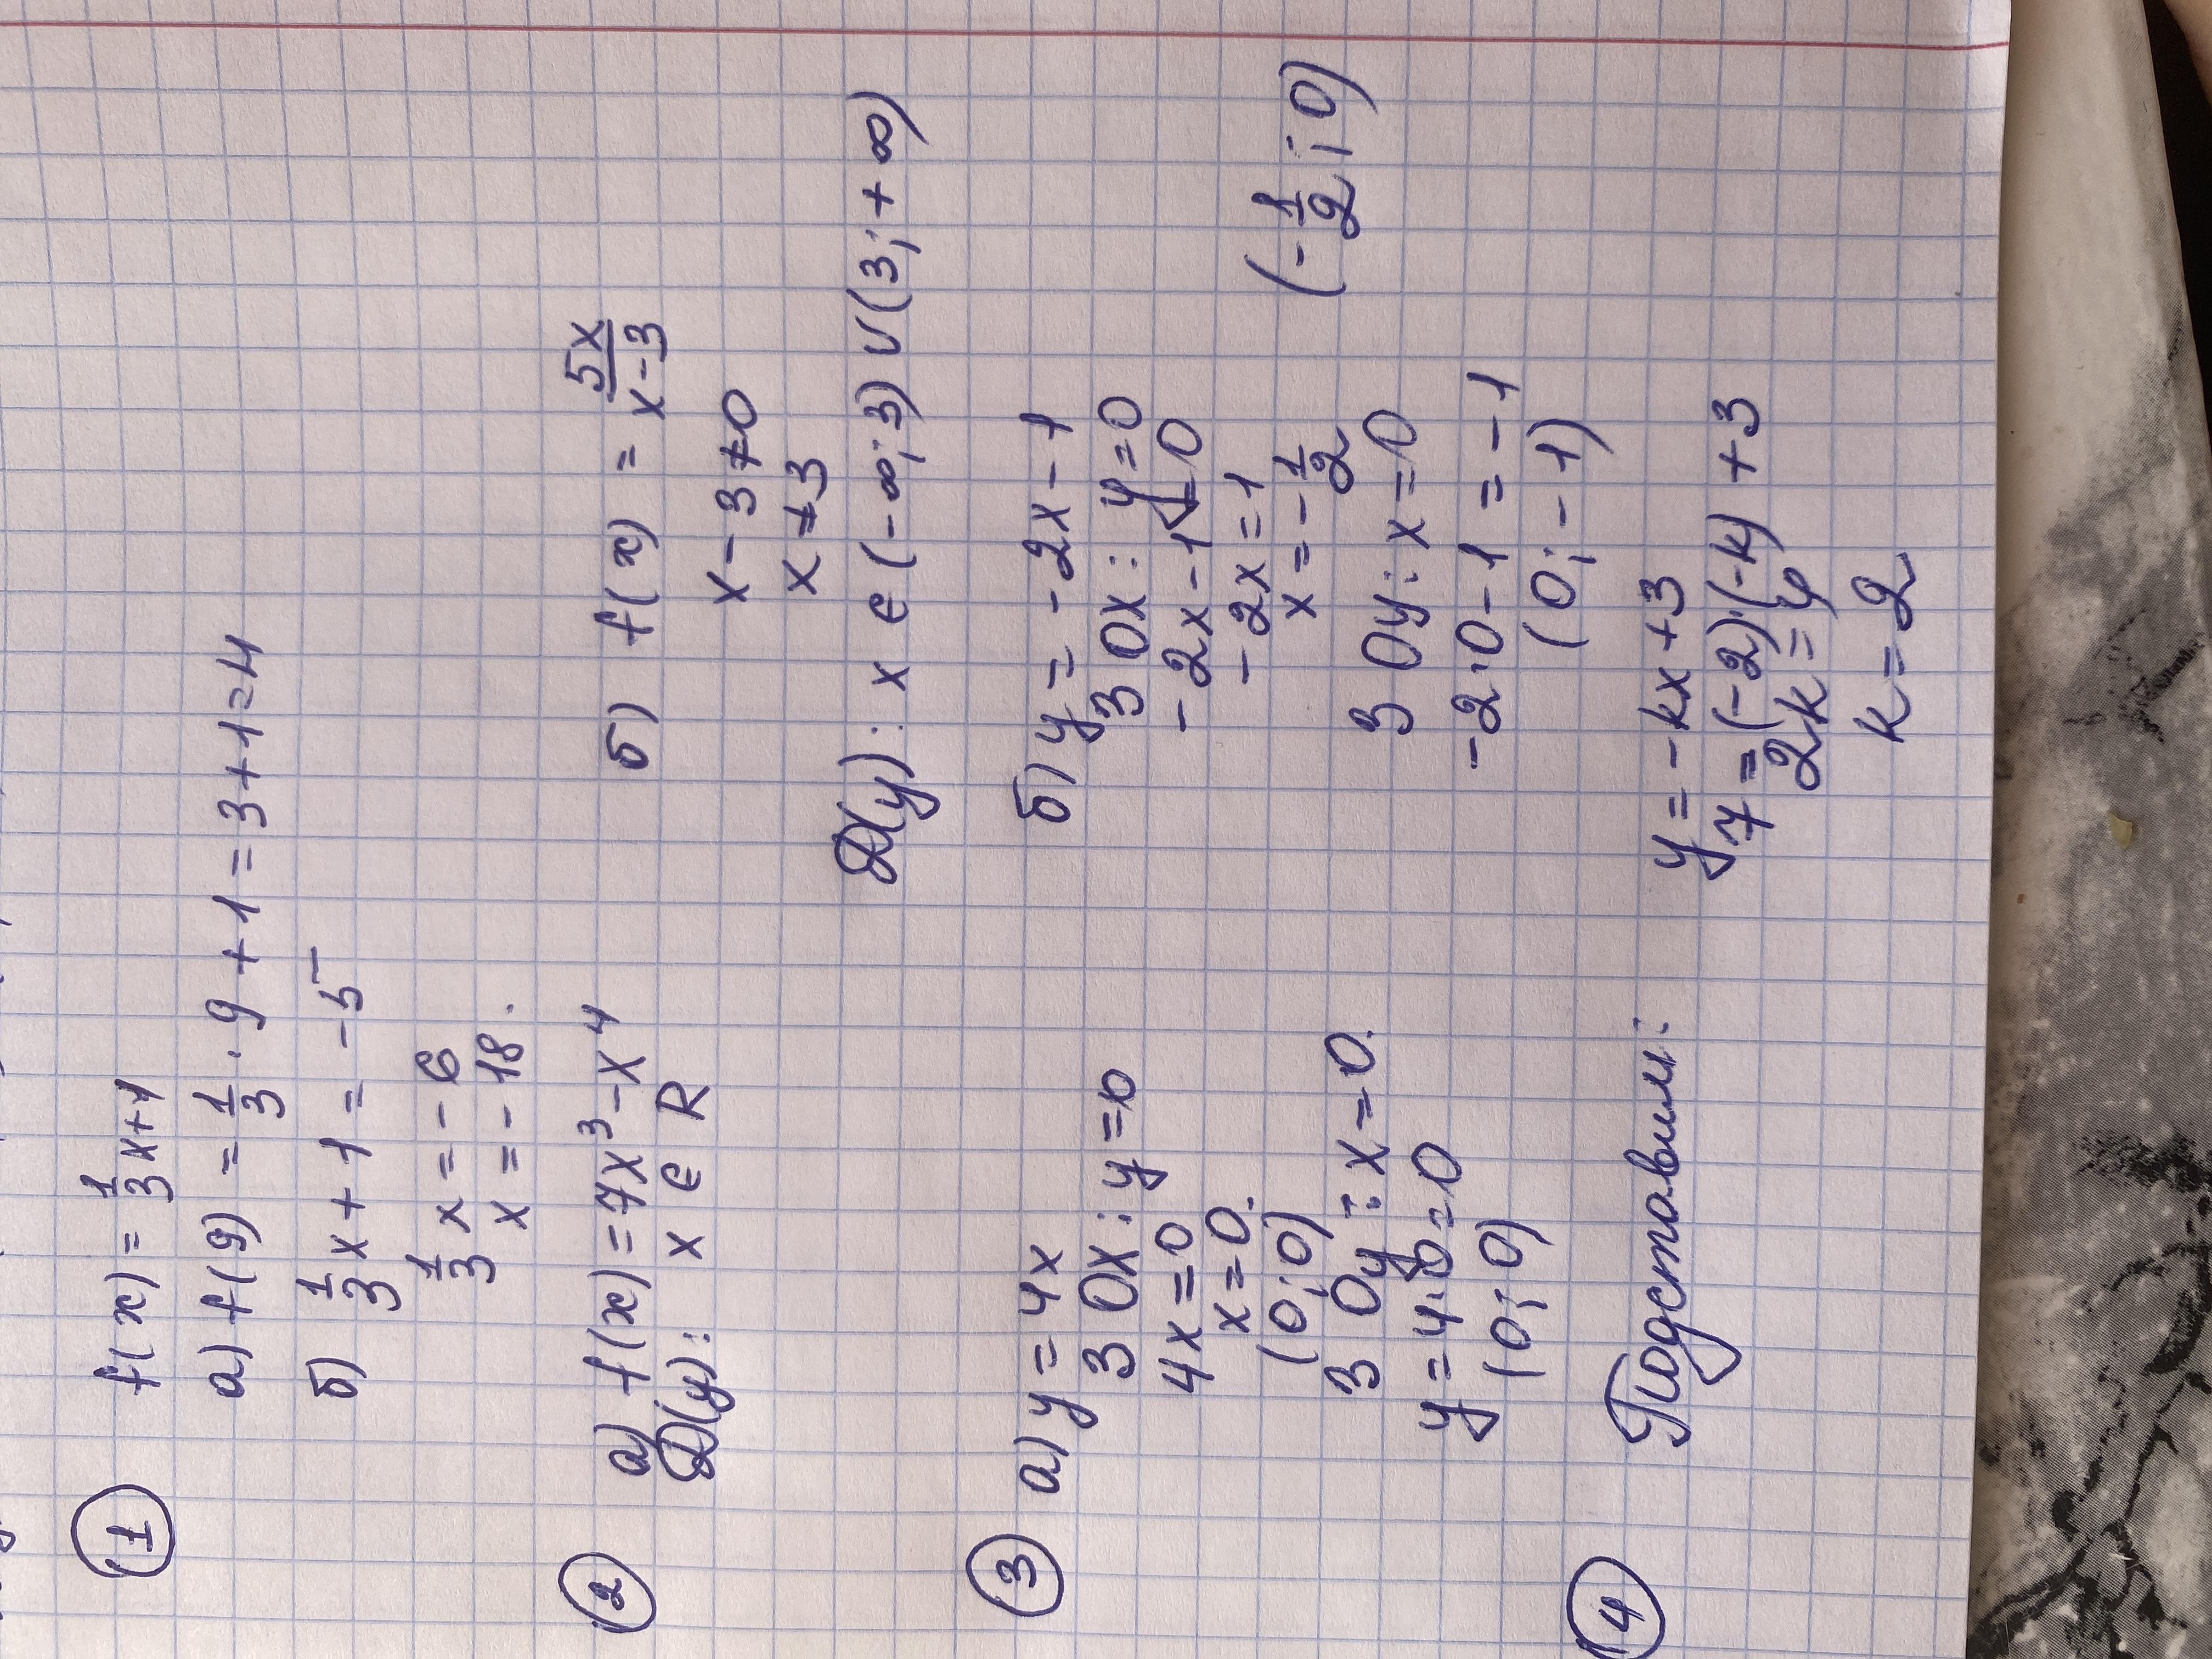 ① f(x) = 1/3 x+1
а) f(9) = 1/3 · 9 + 1 = 3+1=4
б) 1/3 x + 1 = -5
1/3 x = -6
x = -18.
② а) f(x) = 7x³ - x⁴
D(y): x ∈ R
б) f(x) = 5x/(x-3)
x-3≠0
x≠3
D(y): x ∈ (-∞; 3) ∪ (3; +∞)
③ а) y = 4x
З Ox: y=0
4x=0
x=0.
(0; 0)
З Oy: x=0.
y=4·0=0
(0; 0)
б) y = -2x-1
З Ox: y=0
-2x-1=0
-2x=1
x=-1/2
(-1/2; 0)
З Oy: x=0
-2·0-1 = -1
(0; -1)
④ Підставим:
y = -kx+3
7=(-2)·(-k)+3
2k=4
k=2